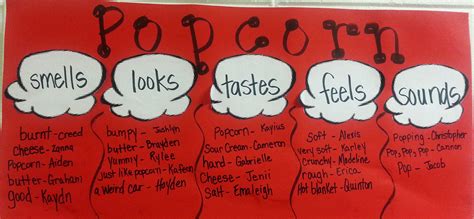 Popcorn
smells
looks
tastes
feels
sounds
burnt-creed
Cheese-Zanna
Popcorn-Aiden
butter-Graham
good-Kaydn
bumpy-Jashlyn
butter-Brayden
Yummy-Rylee
just like popcorn-
a weird car-Hayden
Popcorn-Kayius
Sour Cream-Cameron
hard-Gabrielle
Cheese-Jenii
Salt-Emaleigh
Soft-Alexis
very soft-Karley
Crunchy-Madeline
rough-Erica
Hot blanket-Quinton
Popping-Christopher
Pop, Pop, Pop-Cannon
Pop-Jacob